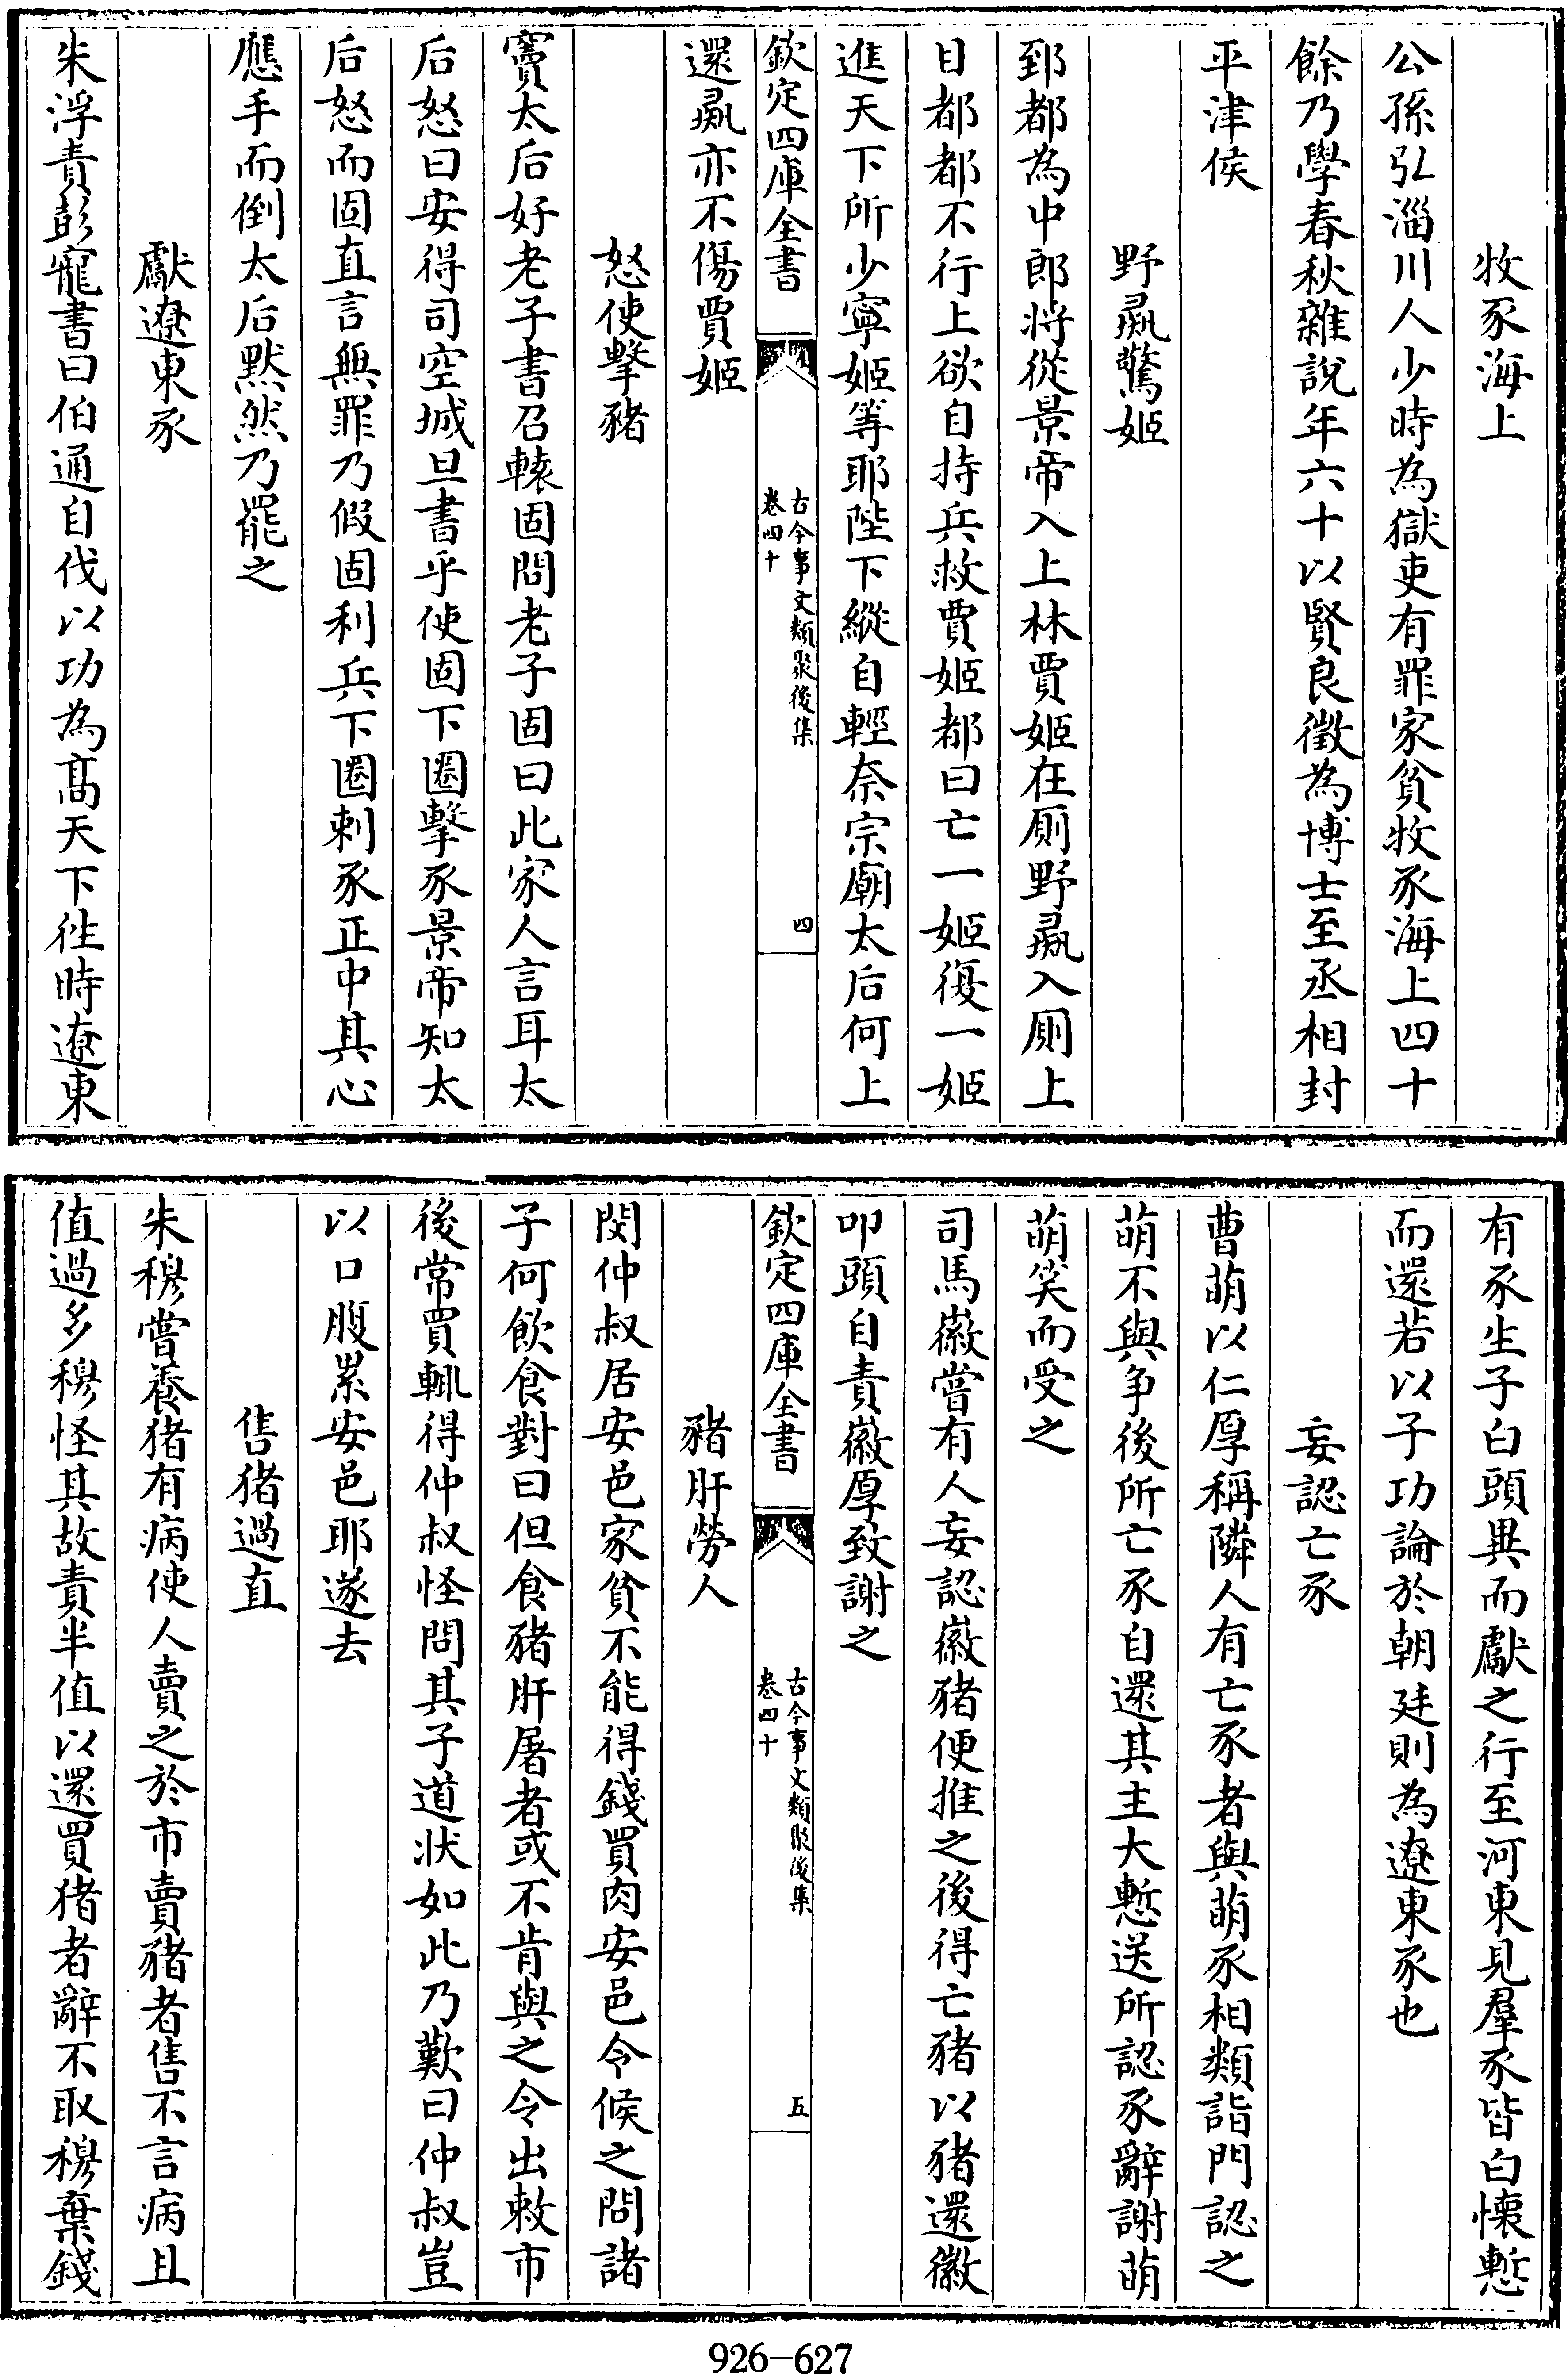 牧豕海上
公孫弘淄川人少時為獄吏有罪家貧牧豕海上四十
餘乃學春秋雜說年六十以賢良徵為博士至丞相封
平津侯
野彘驚姬
郅都為中郎将從景帝入上林賈姬在厠野彘入厠上
目都都不行上欲自持兵救賈姬都曰亡一姬復一姬
進天下所少寧姬等耶陛下縱自輕奈宗廟太后何上
欽定四庫全書
古今事文類聚後集
卷四十
四
還彘亦不傷賈姬
怒使擊豬
竇太后好老子書召轅固問老子固曰此家人言耳太
后怒曰安得司空城旦書乎使固下圈擊豕景帝知太
后怒而固直言無罪乃假固利兵下圈刺豕正中其心
應手而倒太后默然乃罷之
獻遼東豕
朱浮責彭寵書曰伯通自伐以功為髙天下往時遼東
有豕生子白頭異而獻之行至河東見羣豕皆白懐慙
而還若以子功論於朝廷則為遼東豕也
妄認亡豕
曹萌以仁厚稱隣人有亡豕者與萌豕相類詣門認之
萌不與争後所亡豕自還其主大慙送所認豕辭謝萌
萌笑而受之
司馬徽嘗有人妄認徽豬便推之後得亡豬以豬還徽
叩頭自責徽厚致謝之
欽定四庫全書
古今事文類聚後集
卷四十
五
豬肝勞人
閔仲叔居安邑家貧不能得錢買肉安邑令候之問諸
子何飲食對曰但食豬肝屠者或不肯與之令出敕市
後常買輒得仲叔怪問其子道狀如此乃歎曰仲叔豈
以口腹累安邑耶遂去
售猪過直
朱穆嘗養猪有病使人賣之於市賣豬者售不言病且
值過多穆怪其故責半值以還買猪者辭不取穆棄錢
926-627